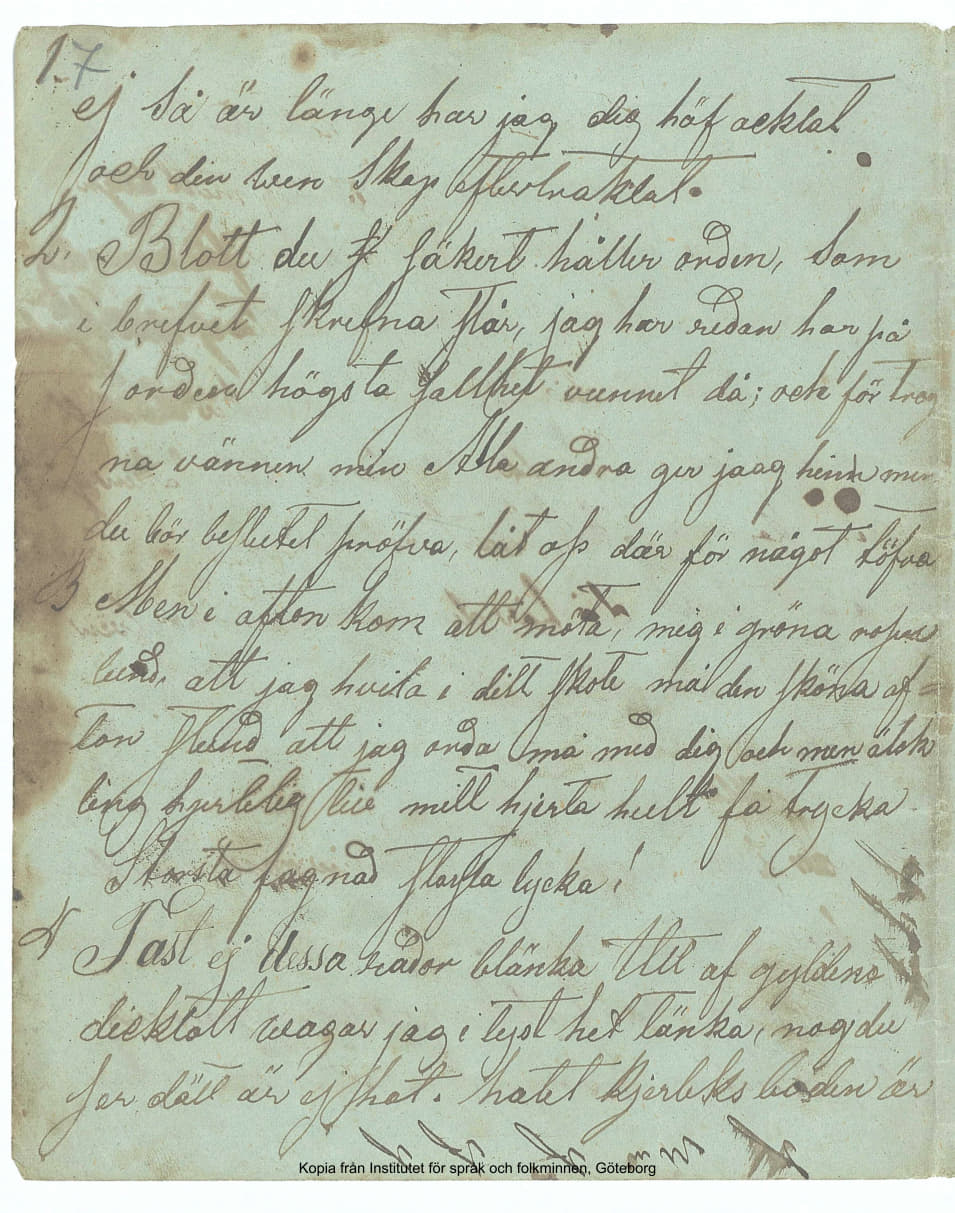 17
ej så är länge har jag dig höf acktat
och din wen skap efterltraktat.
2. Blott du säkert håller orden, som
i brefvet skrefna står, jag har redan har på
jorden högsta sallhet vunnet då; och för trog
na vännen min Alla andra ger jaag men
du bör beslutet pröfva, låt oss där för något töfva
3 Men i afton kom att möta, mig i gröna rosen
lund, att jag hvila i ditt sköte må den sköna af=
ton stund att jag orda må med dig och men älsk
ling hjertelig till mitt hjerta hult få trycka
Storsta fagnad storsta lycka!
4 Fast ej dessa rador blänka Utt af gyldene
dicktott wagar jag i tyst het länka, nog du
ser dätt är ej hot. hatet kjerleks boden är
Kopia från Institutet för språk och folkminnen, Göteborg